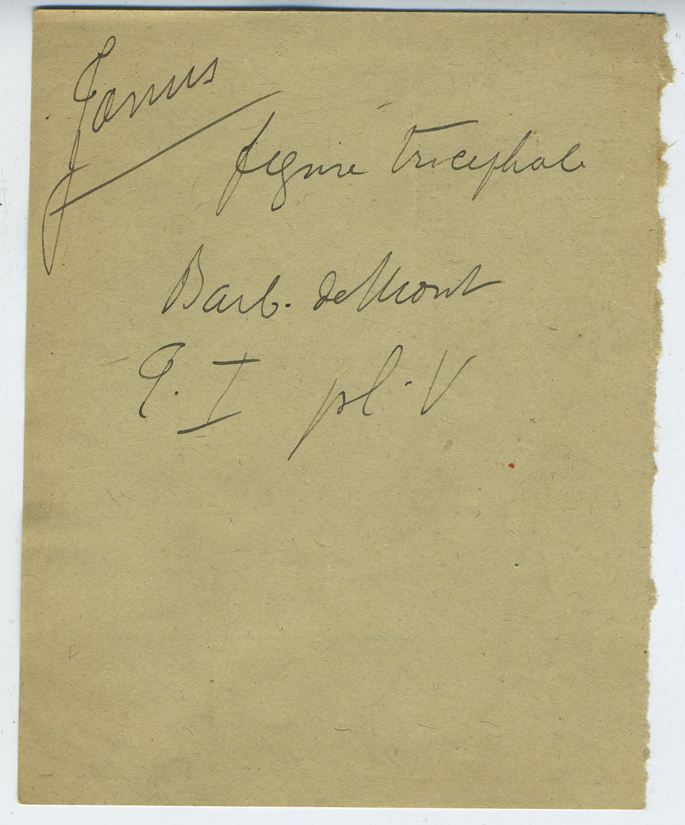 Janus
figure tricephale
Barb. de Mont
T. I pl. V